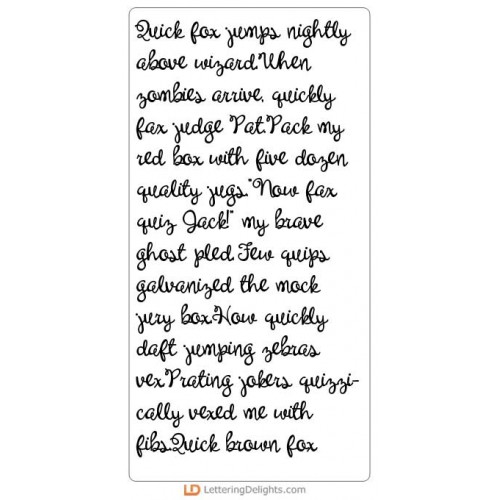 Quick fox jumps nightly
above wizard.When
zombies arrive, quickly
fax judge Pat.Pack my
red box with five dozen
quality jugs."Now fax
quiz Jack!" my brave
ghost pled.Few quips
galvanized the mock
jury box.How quickly
daft jumping zebras
vex.Prating jokers quizzi-
cally vexed me with
fibs.Quick brown fox
LD LetteringDelights.com